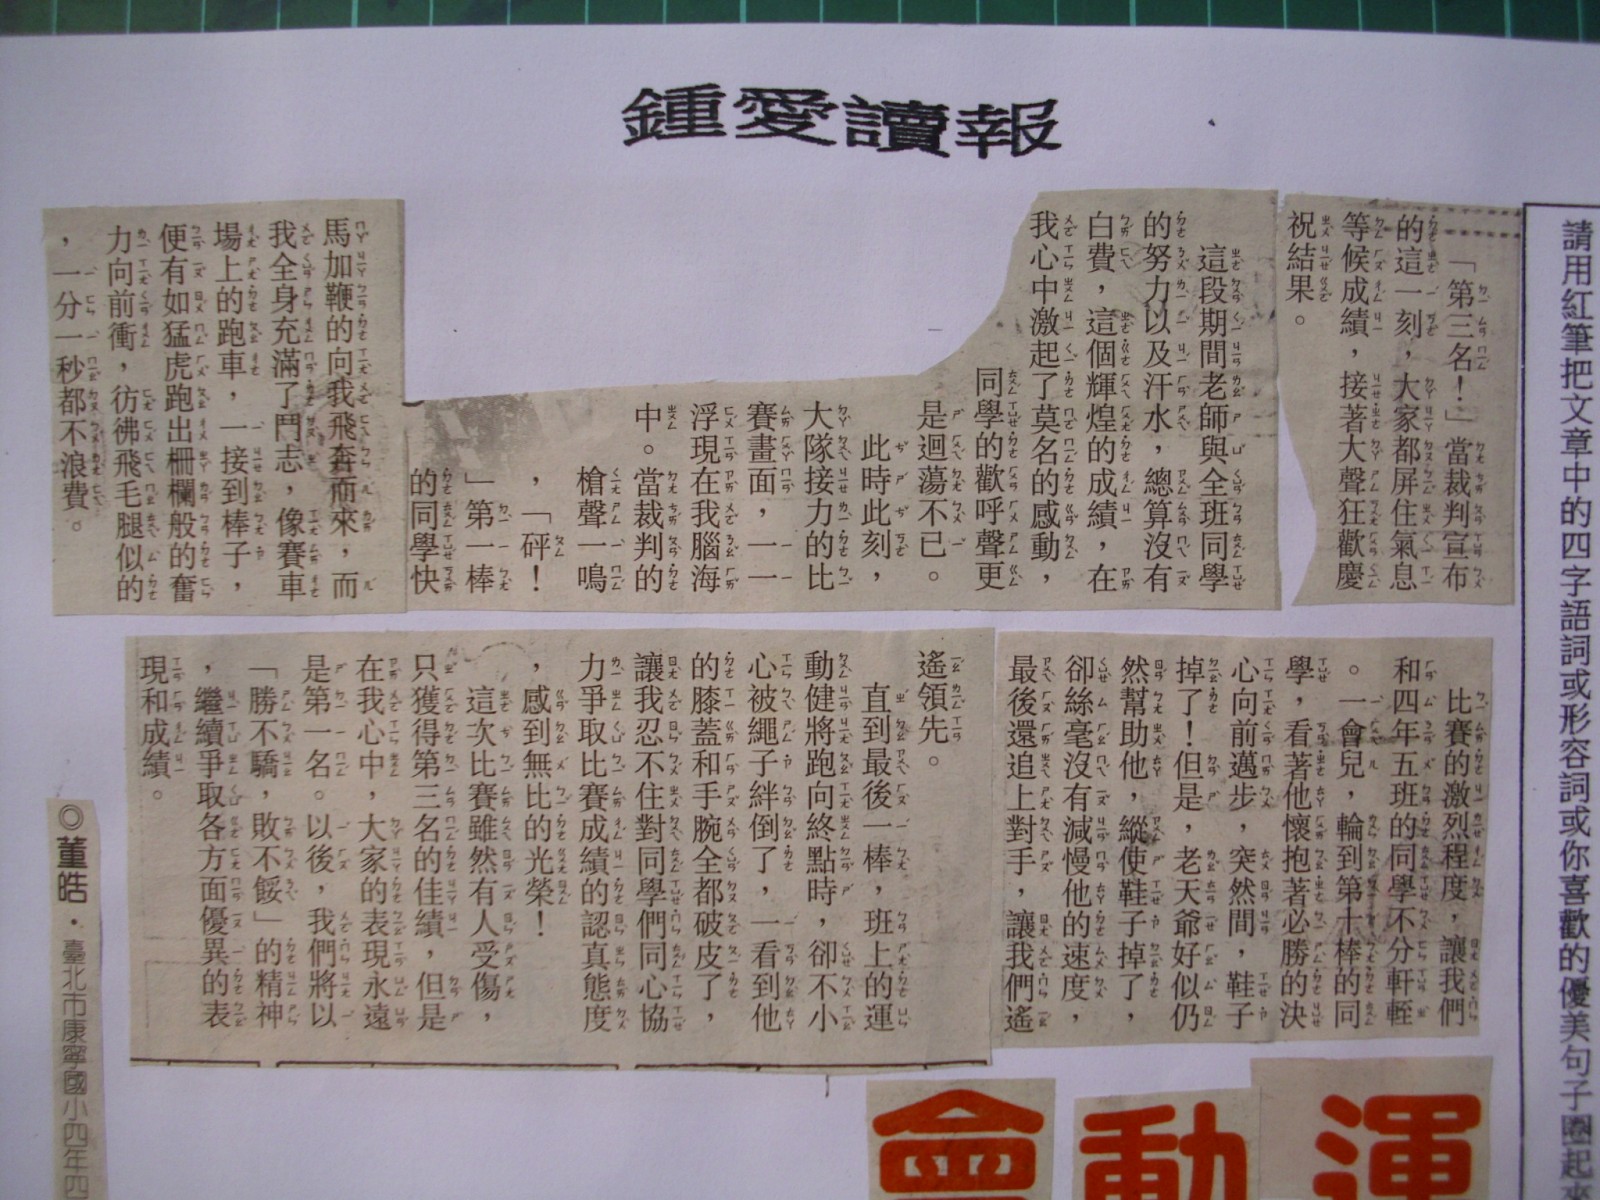 鍾愛讀報
請用紅筆把文章中的四字語詞或形容詞或你喜歡的優美句子圈起來
「第三名！」當裁判宣布
的這一刻，大家都屏住氣息
等候成績，接著大聲狂歡慶
祝結果。
這段期間老師與全班同學
的努力以及汗水，總算沒有
白費，這個輝煌的成績，在
我心中激起了莫名的感動，
同學的歡呼聲更
是迴蕩不已。
此時此刻，
大隊接力的比
賽畫面，一一
浮現在我腦海
中。當裁判的
槍聲一鳴
，「砰！
」第一棒
的同學快
馬加鞭的向我飛奔而來，而
我全身充滿了鬥志，像賽車
場上的跑車，一接到棒子，
便有如猛虎跑出柵欄般的奮
力向前衝，彷彿飛毛腿似的
，一分一秒都不浪費。
比賽的激烈程度，讓我們
和四年五班的同學不分軒輊
。一會兒，輪到第十棒的同
學，看著他懷抱著必勝的決
心向前邁步，突然間，鞋子
掉了！但是，老天爺好似仍
然幫助他，縱使鞋子掉了，
卻絲毫沒有減慢他的速度，
最後還追上對手，讓我們遙
遙領先。
直到最後一棒，班上的運
動健將跑向終點時，卻不小
心被繩子絆倒了，一看到他
的膝蓋和手腕全都破皮了，
讓我忍不住對同學們同心協
力爭取比賽成績的認真態度
，感到無比的光榮！
這次比賽雖然有人受傷，
只獲得第三名的佳績，但是
在我心中，大家的表現永遠
是第一名。以後，我們將以
「勝不驕，敗不餒」的精神
，繼續爭取各方面優異的表
現和成績。
◎董皓・臺北市康寧國小四年四
運動會